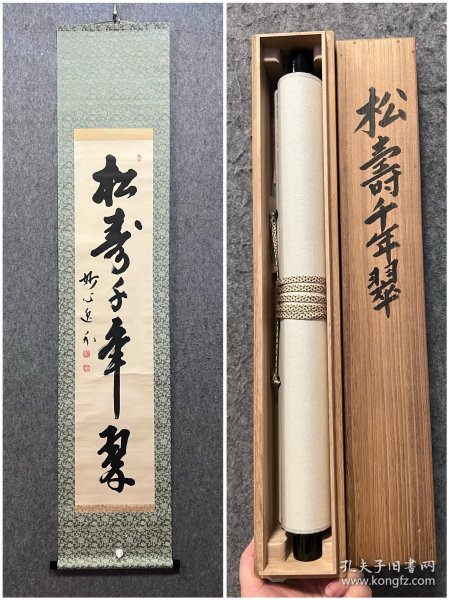 松壽千年翠
松壽千年翠
孔夫子旧书网
www.kongfz.com